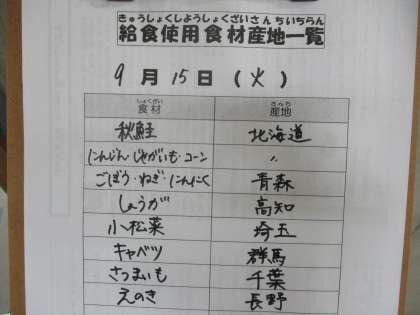 きゅうしょくしようしょくざいさんちいちらん
給食使用食材産地一覧
9月15日(火)
しょくざい さんち
食材 産地
秋鮭 北海道
にんじん じゃがいも・コーン 〃
ごぼう・ねぎ・にんにく 青森
しょうが 高知
小松菜 埼玉
キャベツ 群馬
さつまいも 千葉
えのき 長野